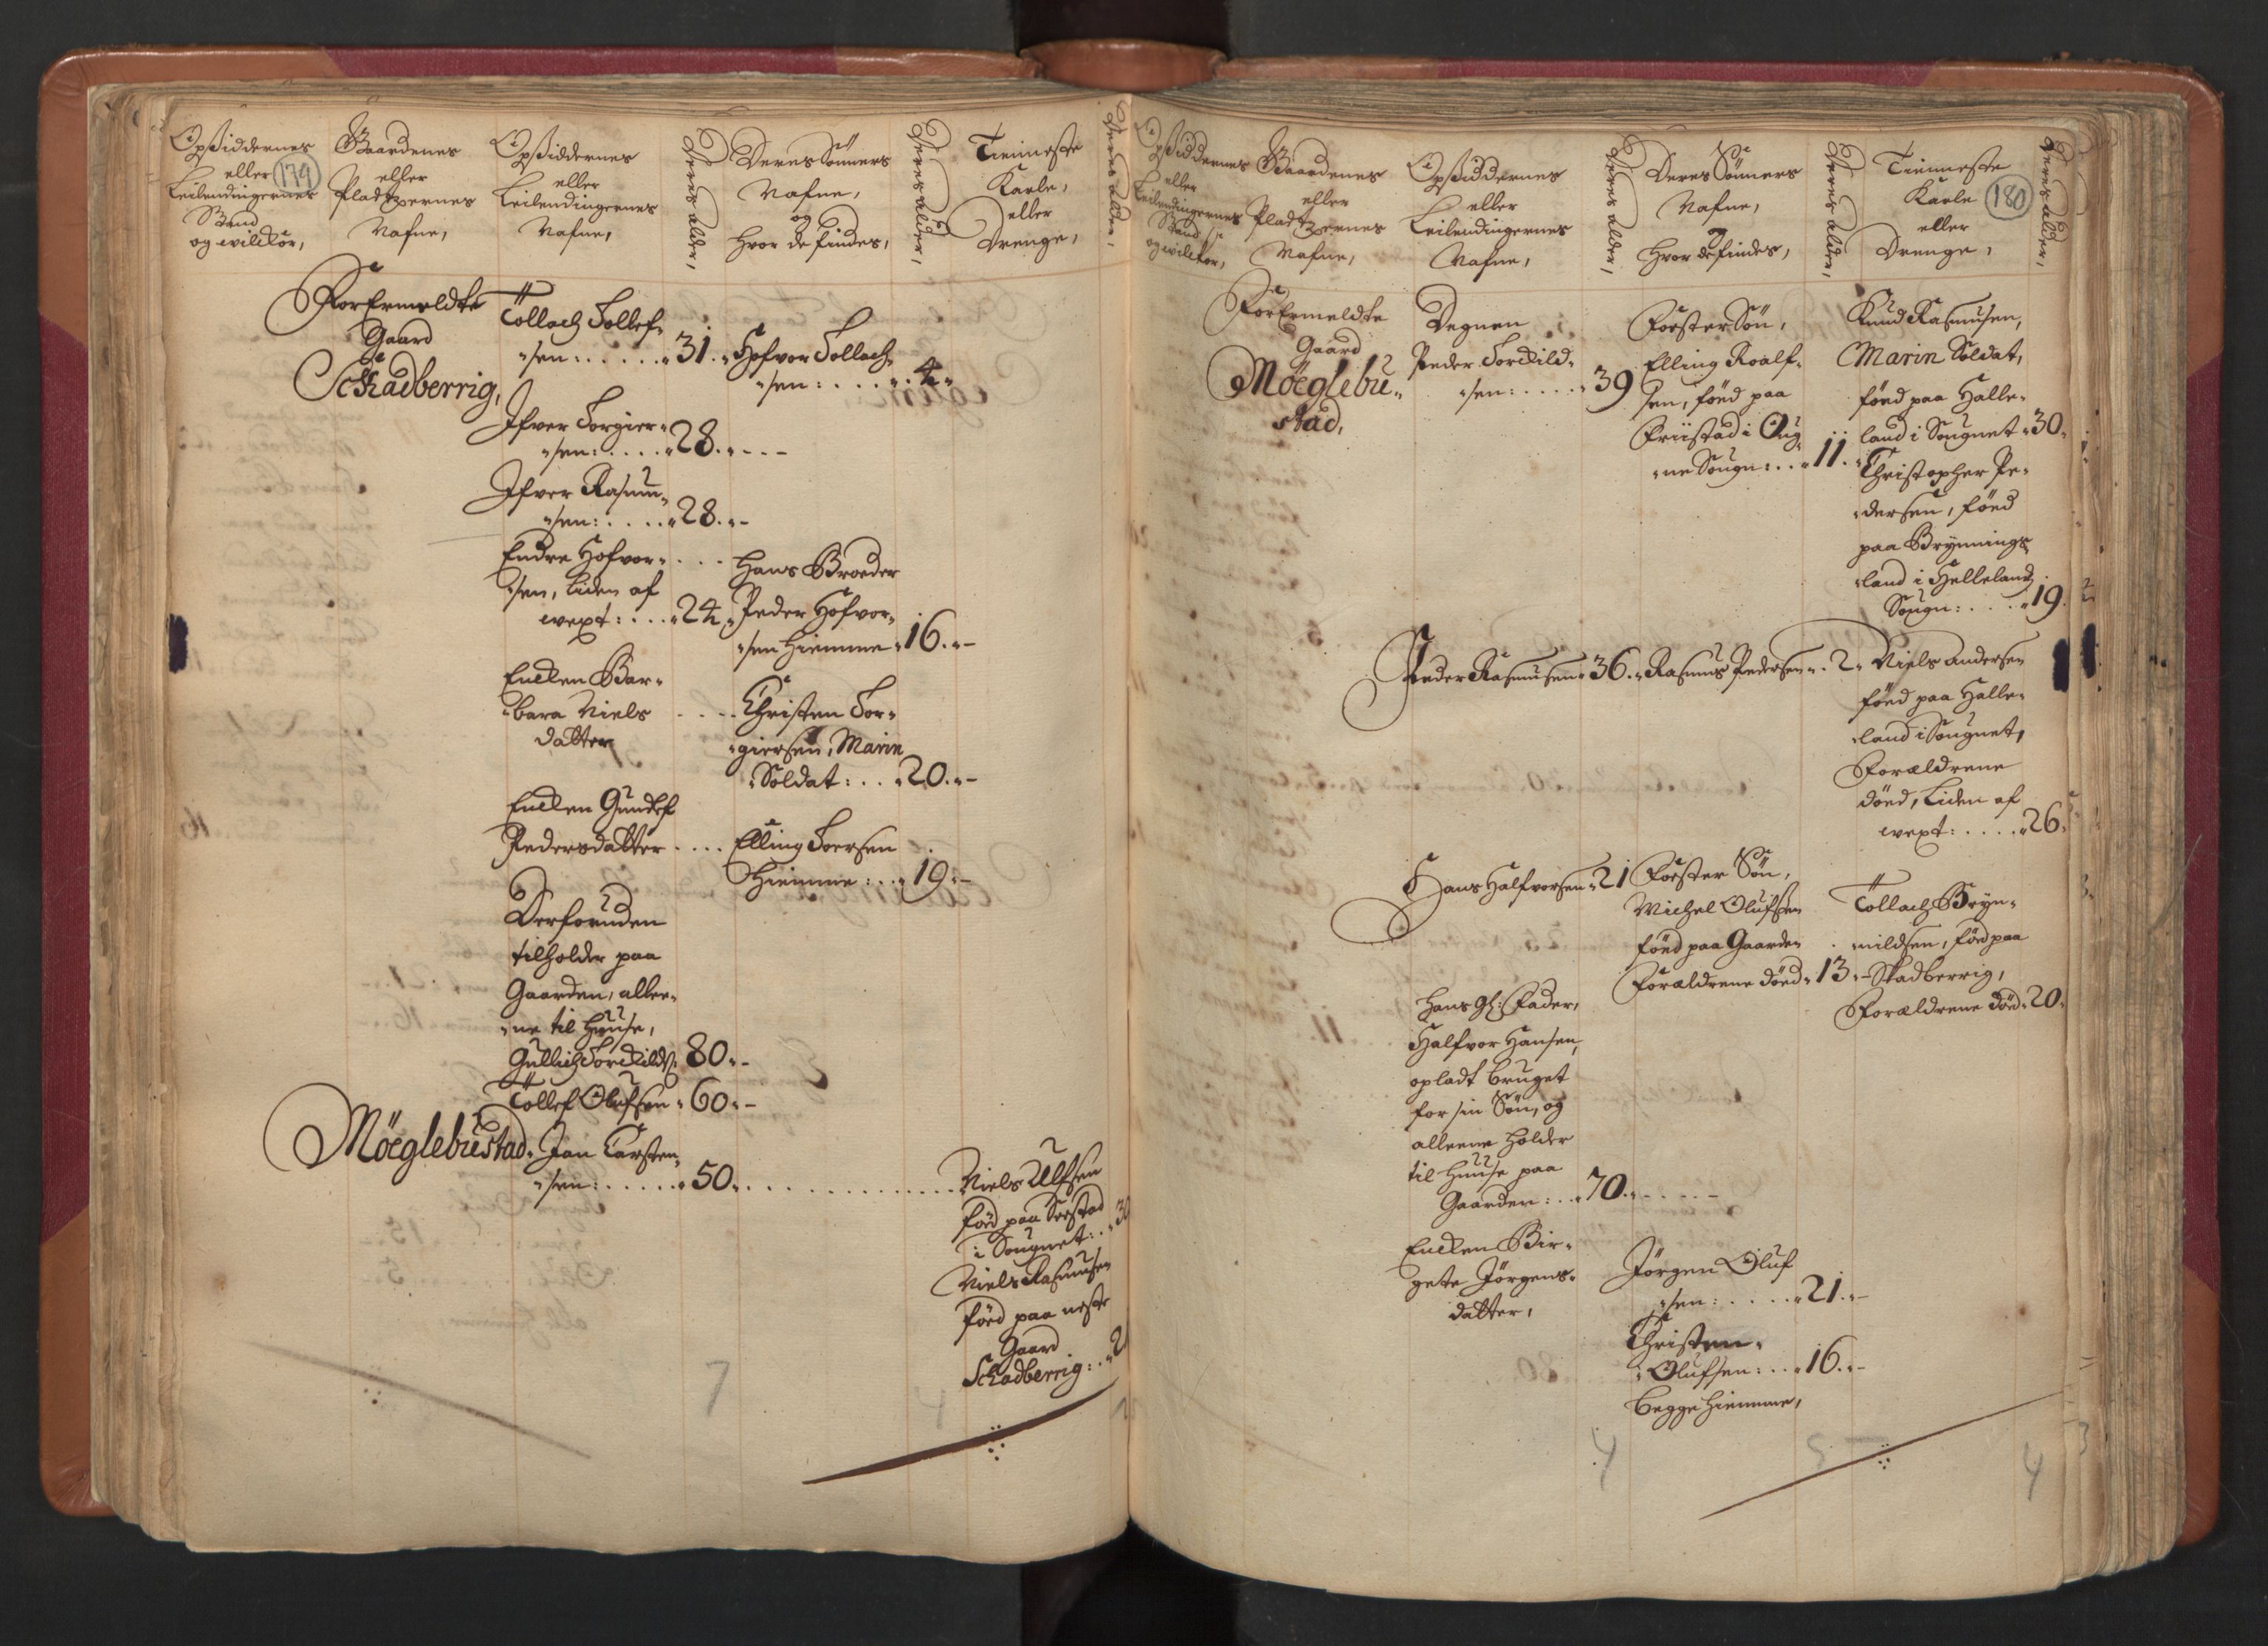 Opsiddernes
eller
Leilendingernes
Stand
og wilckor,
179
Gaardenes
eller
Pladtzernes
Nafne,
Opsiddernes
eller
Leilendingernes
Nafne,
Deres alder,
Deres Sönners
Nafne,
og
hvor de findes,
Deres alder,
Tienneste
Karle,
eller
Drenge,
Deres alder,
ForErmeldte
Gaard
Schadberrig,
Tollach Tollef-
sen: 31.
Hofvor Tollach-
sen: 4
Ifver Torgier-
sen: 28.
Ifver Rasmu-
sen: 28.
Endre Hofvor-
sen, liden af
wext: 24
Hans Broeder
Peder Hofvor-
sen hiemme 16.
Encken Bar-
bara Niels
datter
Christen Tor-
giersen, Marin
Soldat: 20.
Encken
Pedersdatter
Elling Toersen
hiemme: 19.
Derforuden
tilholder paa
Gaarden, allee-
ne til Huuse,
Gullich Torckilds: 80.
Tollef Olufsen 60.
Möeglebustad. Jan Carsten-
sen: 50.
Niels Ulfsen
föed paa
i Sougnet: 30
Niels Rasmusen
föed paa neste
Gaard
Schadberrig: 2
7
Opsiddernes
eller
Leilendingernes
Stand
og wilckor,
Gaardenes
eller
Pladtzernes
Nafne,
Opsiddernes
eller
Leilendingernes
Nafne,
Deres alder,
Deres Sönners
Nafne,
og
hvor de findes,
Deres alder,
Tienneste
Karle
eller
Drenge,
180
Deres alder,
ForErmeldte
Gaard
Möeglebu-
stad,
Degnen
Peder Torckild-
sen: 39
Foester Sön,
Elling Roalf-
sen, föed paa
Friistad i Oug-
ne Sougn: 11.
Knud Rasmusen,
Marin Soldat,
föed paa Halle-
land i Sougnet 30.
Christopher Pe-
dersen, föed
paa Brynnings
land i Helleland
Sougn: 19.
Peder Rasmusen 36. Rasmus Pedersen 2. Niels Andersen
föed paa Halle-
land i Sougnet,
Forældrene
döed, liden af
wext: 26.
Hans Halfvorsen 21
Foester Sön,
Michel Olufsen
föed paa Gaarden
Forældrene döed 13.
Tollach Bryn-
nildsen, föed paa
Skadberrig,
Forældrene död 20.
Hans Gl: Fader,
Halfvor Hansen,
opladt bruget
for sin Sön, og
alleene holder
til Huuse paa
Gaarden: 70.
Encken Bir-
gete Jörgens-
datter,
Jörgen Oluf
sen: 21.
Christen
Olufsen: 16.
begge hiemme,
4
4
3